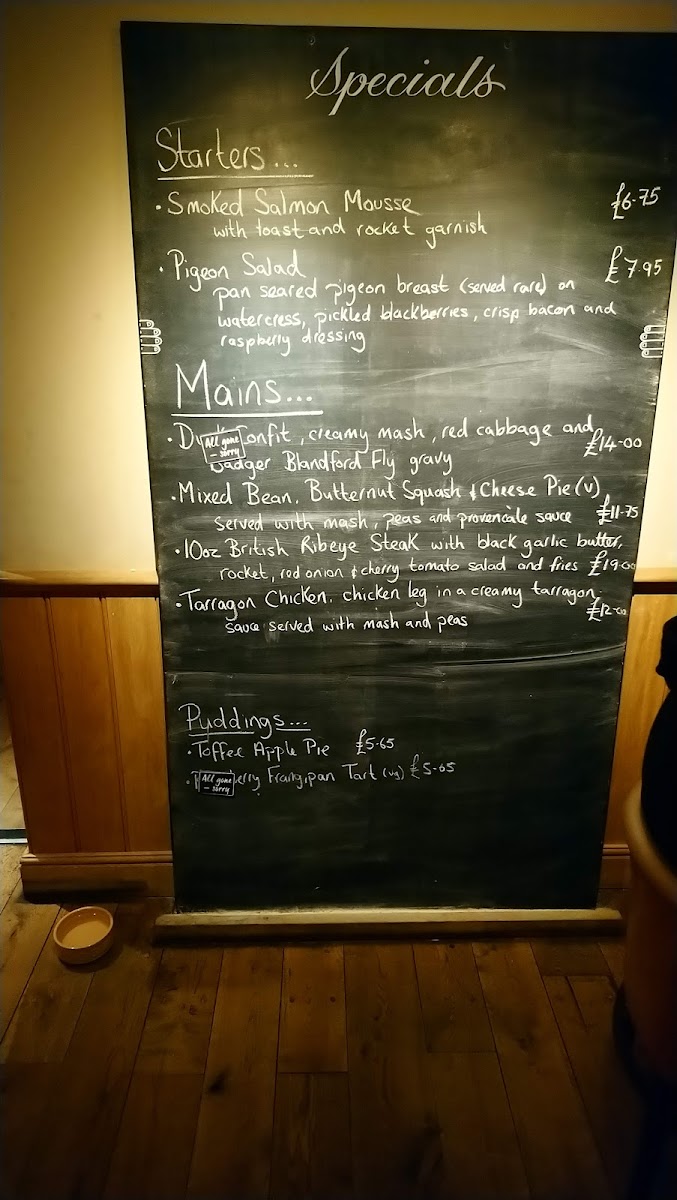 Specials
Starters...
• Smoked Salmon Mousse £6.75
with toast and rocket garnish
• Pigeon Salad £7.95
pan seared pigeon breast (served rare) on
watercress, pickled blackberries, crisp bacon and
raspberry dressing
Mains...
• Confit, creamy mash, red cabbage and £14.00
All gone
- sorry
Badger Blandford Fly gravy
• Mixed Bean, Butternut Squash & Cheese Pie (v)
served with mash, peas and provencale sauce £11.75
• 10oz British Ribeye Steak with black garlic butter,
rocket, red onion & cherry tomato salad and fries £19.00
• Tarragon Chicken. chicken leg in a creamy tarragon £12.00
sauce served with mash and peas
Puddings...
• Toffee Apple Pie £5.65
• Frangipan Tart (vg) £5.65
All gone
- sorry